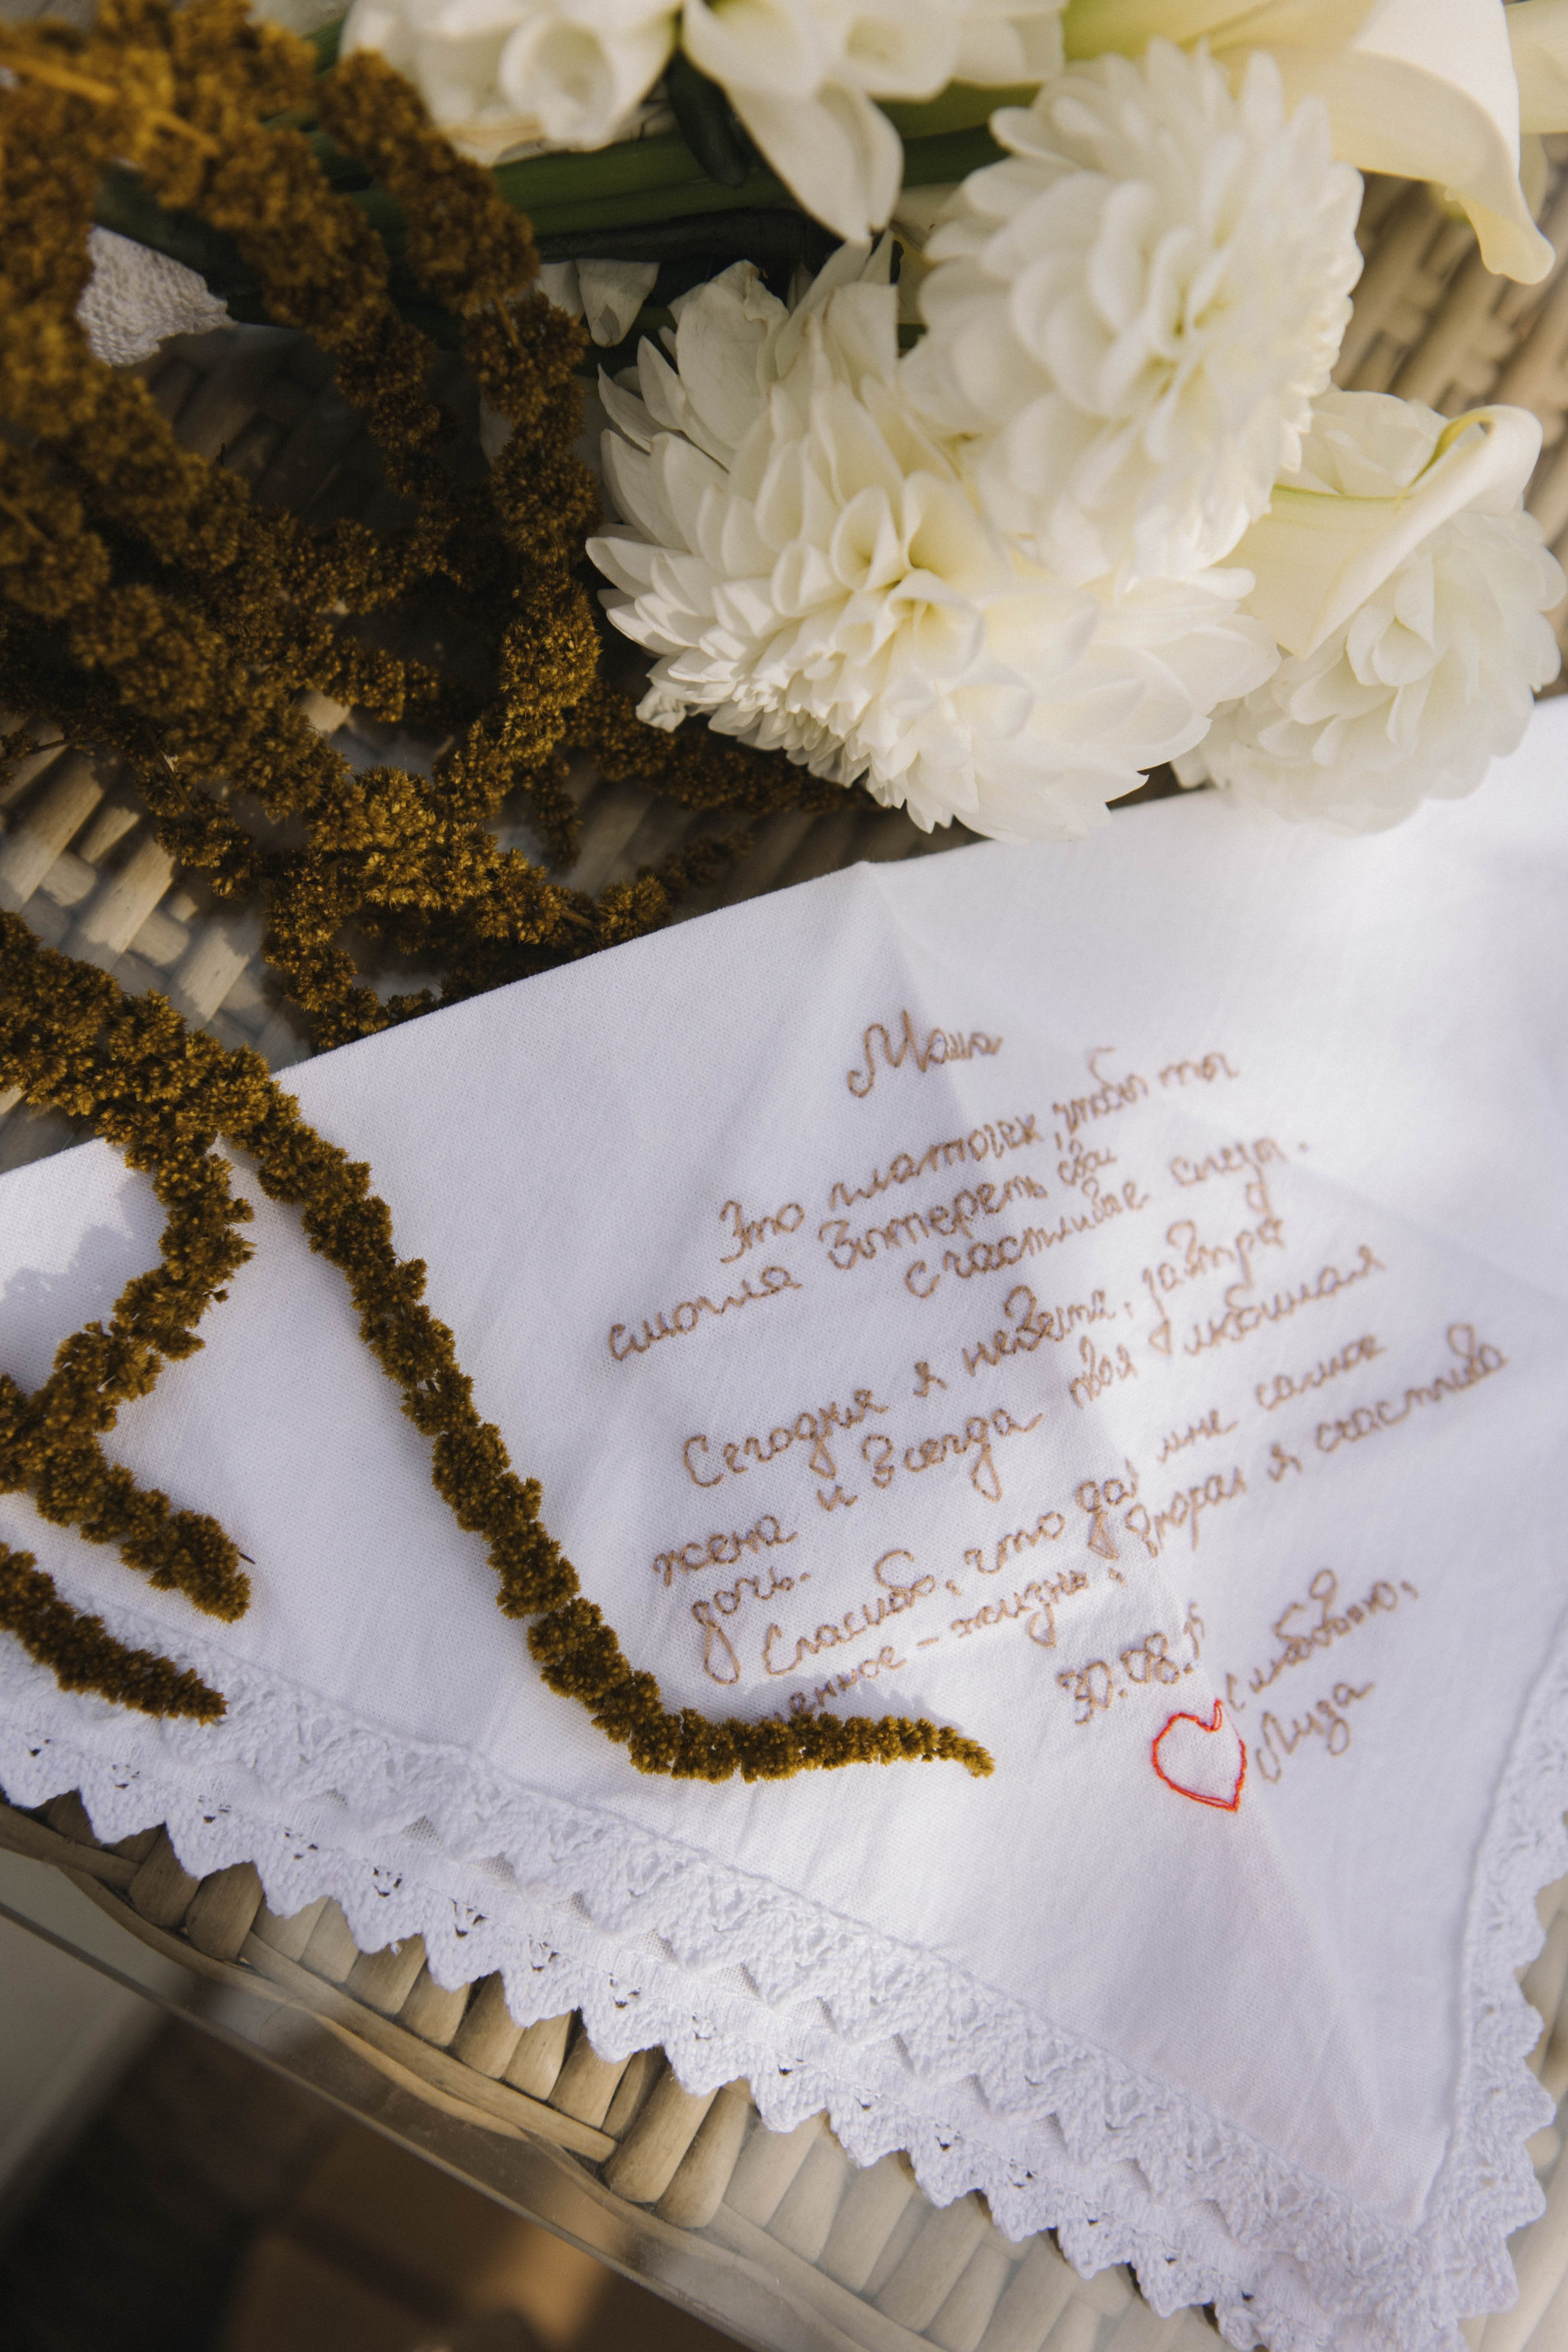 Мама
Это платочек, чтобы ты
смогла вытереть свои
счастливые слезы.
Сегодня я невеста, завтра
жена и всегда твоя любимая
дочь.
Спасибо, что дал мне самое
енное - жизнь, которая я счастлива
30.08.1
С любовью,
Лиза